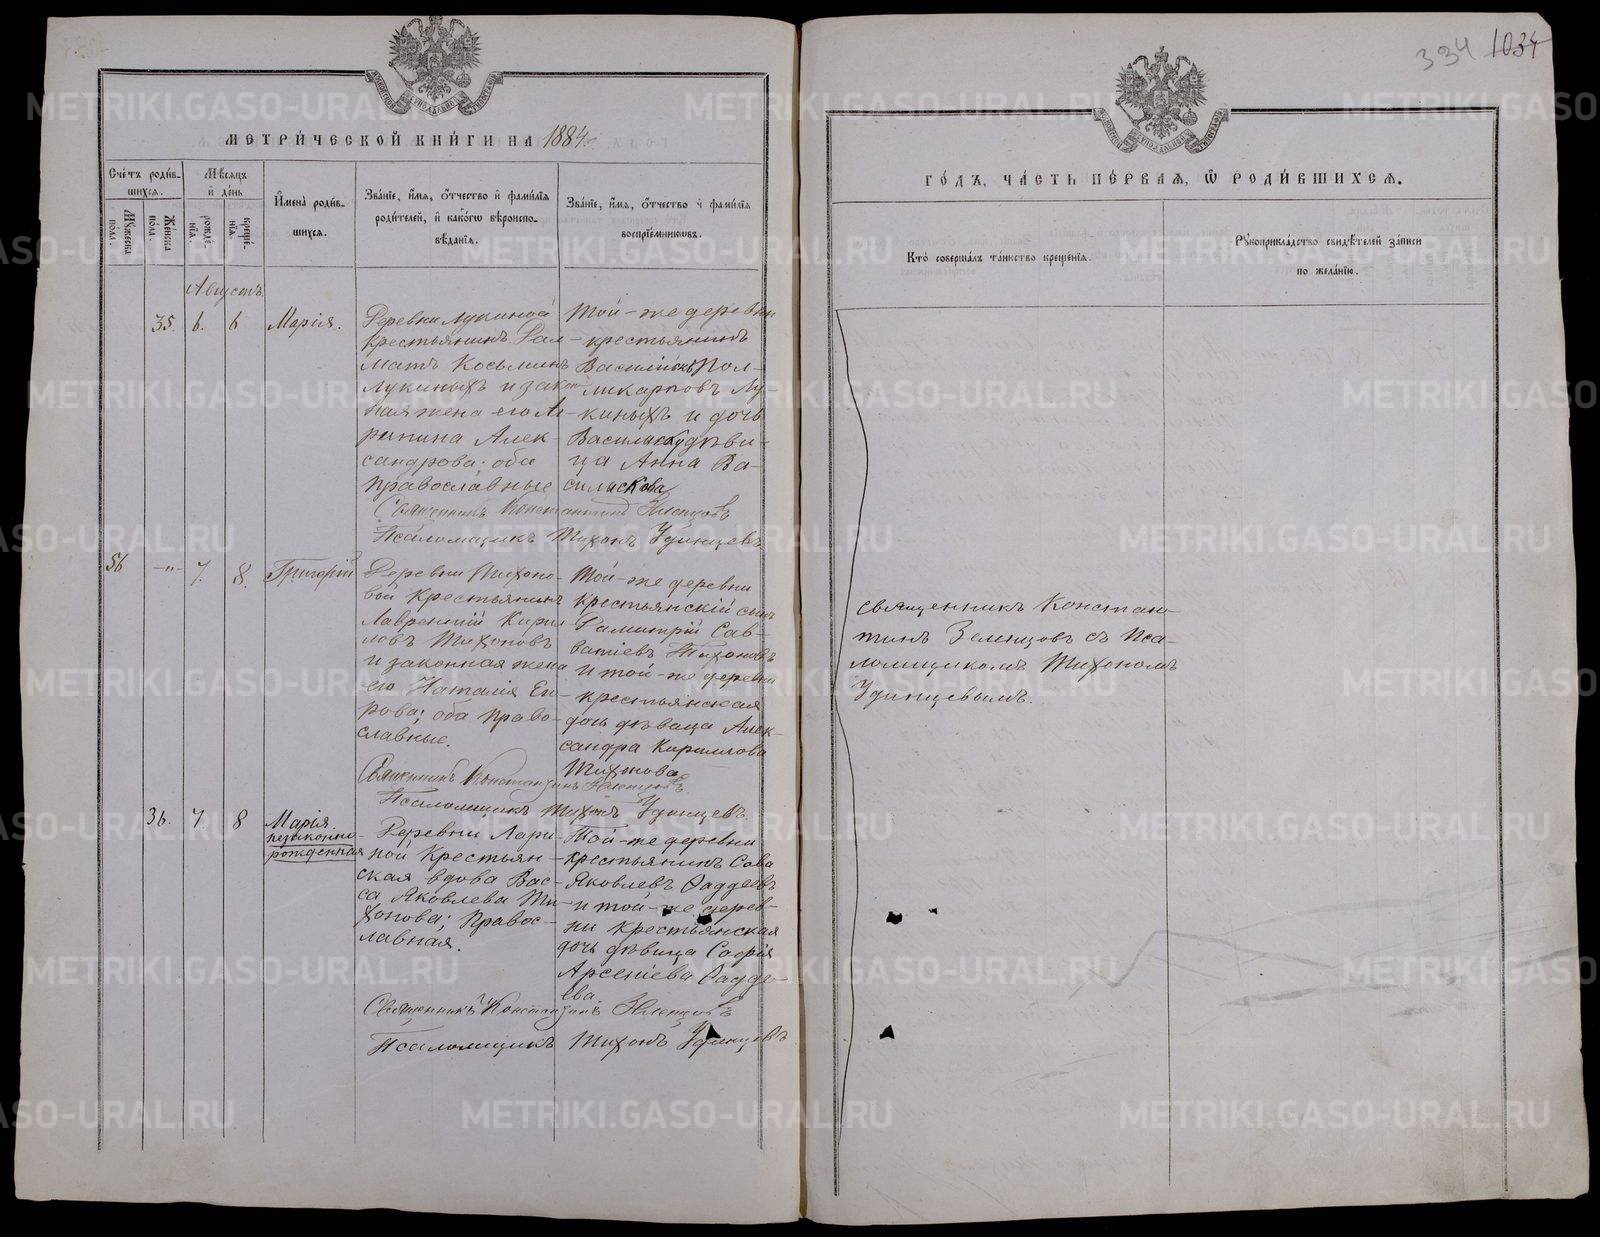 334 1034
МЕТРИ́ЧЕСКОЙ КНИ́ГИ НА 1884 г.
Сче́тъ роди́вшихся.
Му́жеска по́ла.
Же́нска по́ла.
Мѣ́сяцъ и҆ де́нь
рожде́нїѧ.
креще́нїѧ.
И҆мена̀ роди́вшихся.
Зва́нїе, и҆́мѧ, ѻ҆́тчество и҆ фами́лїѧ родителей, и҆ како́гѡ вѣроисповѣ́данїѧ.
Зва́нїе, и҆́мѧ, ѻ҆́тчество и҆ фами́лїѧ воспрїе́мникѡвъ.
Августъ
35. 6. 6
Марія.
Деревни Лукиной
крестьянинъ Дал-
матъ Косьминъ
Лукиныхъ и закон
ная жена его Ма-
рина Алек-
сандрова; оба
православные
Той-же деревни
крестьянинъ
Василискъ Пол-
ликарповъ Лу-
киныхъ и дочь
Василиска дѣви-
ца Анна Ва-
силискова
Священникъ Константинъ Зеленцовъ
Псаломщикъ Тихонъ Удинцевъ
56 —„— 7. 8.
Григорій
Деревни Тихоно-
вой крестьянинъ
Лаврентій Кири
ловъ Тихоновъ
и законная жена
его Наталія Его-
рова; оба право-
славные.
Той-же деревни
крестьянскій сынъ
Димитрій Сав-
ватіевъ Тихоновъ
и той-же деревни
крестьянская
дочь дѣвица Алек-
сандра Кириллова
Тихонова
Священникъ Константинъ Зеленцовъ
Псаломщикъ Тихонъ Удинцевъ
36. 7. 8
Марія
незаконно-
рожденная
Деревни Лари-
ной Крестьян-
ская вдова Вас-
са Яковлева Ти-
хонова; Правос-
лавная.
Той-же деревни
крестьянинъ Сава
Яковлевъ Фаддеевъ
и той-же дерев-
ни крестьянская
дочь дѣвица Софія
Арсеніева Фадде-
ева.
Священникъ Константинъ Зеленцовъ
Псаломщикъ Тихонъ Удинцевъ
ГО́ДЪ, ЧА́СТЬ ПЕ́РВАѦ, Ѽ РОДИ́ВШИХСѦ.
Кто̀ соверша́лъ та́инство креще́нїѧ.
Рꙋкоприкла́дство свидѣ́телей за́писи по жела́нїю.
Священникъ Констан-
тинъ Зеленцовъ съ Пса-
ломщикомъ Тихономъ
Удинцевымъ.
METRIKI.GASO-URAL.RU